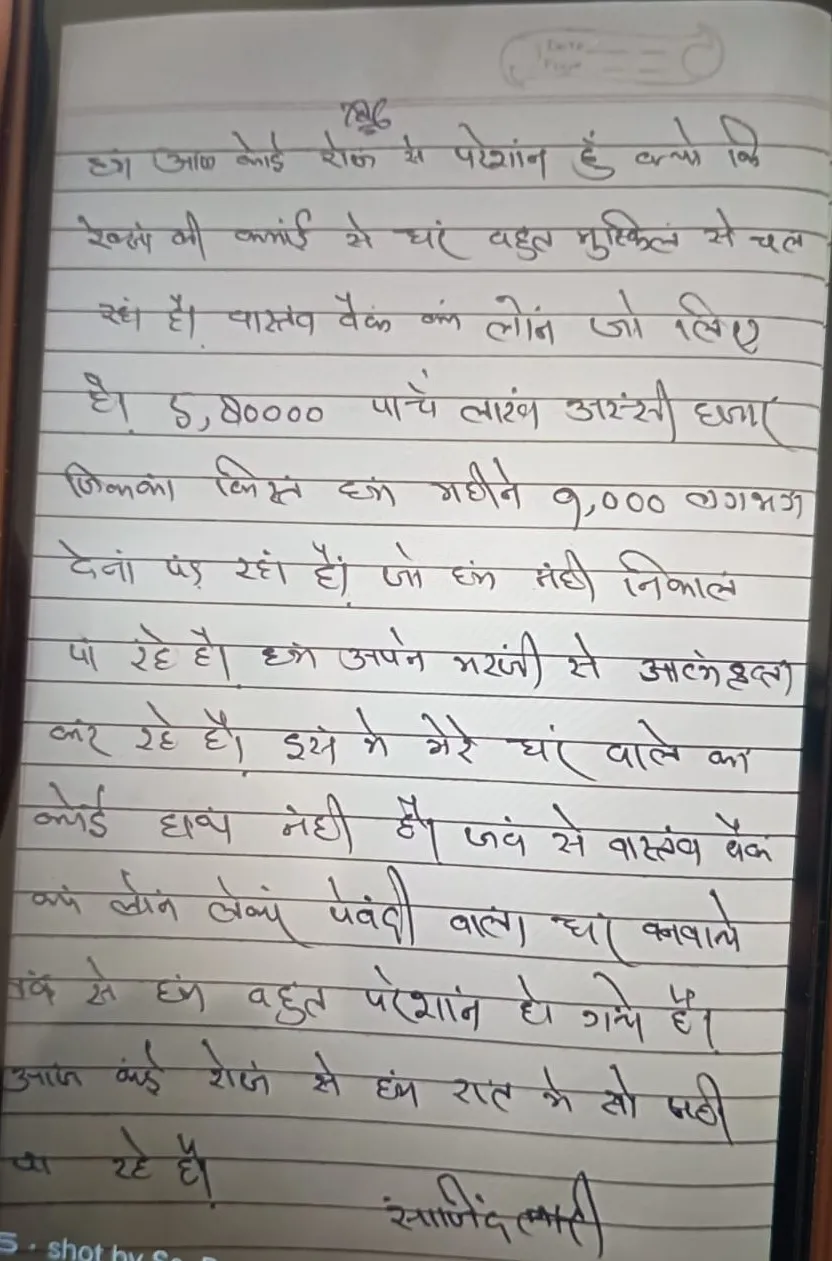 Date
Page
786
हम आज कोई रोज से परेशांन हुँ क्यो कि
रेक्सां की कमांई से घरं वहुत मुस्किलं से चल
रहां है। वास्तंव वैकं कां लोंनं जो लिए
है। 5,80000 पाचँ लाखं अस्ंसी हजार
जिसका किस्तं हमं महीने 9,000 लगभग
देनां पड़ं रहां हैं। जो हमं नंही निकाल
पां रहे है। हमं अपने मरंजी से आत्मंहत्या
कंर रहे है। इसं मे मेरे घरं वाले का
कोई हाथं नंही है। जवं से वास्तंव वैकं
कां लोंन लेकंर पेवंदी वालां घरं बनवाये
तवं से हमं वहुत परेशांन हो गये है।
आज कंई रोजं से हमं रात मे सो नही
पा रहे है।
सांजिद अली
5 · shot by